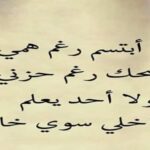 أبتسم رغم همي
حك رغم حزني
ولا أحد يعلم
خلي سوي خا